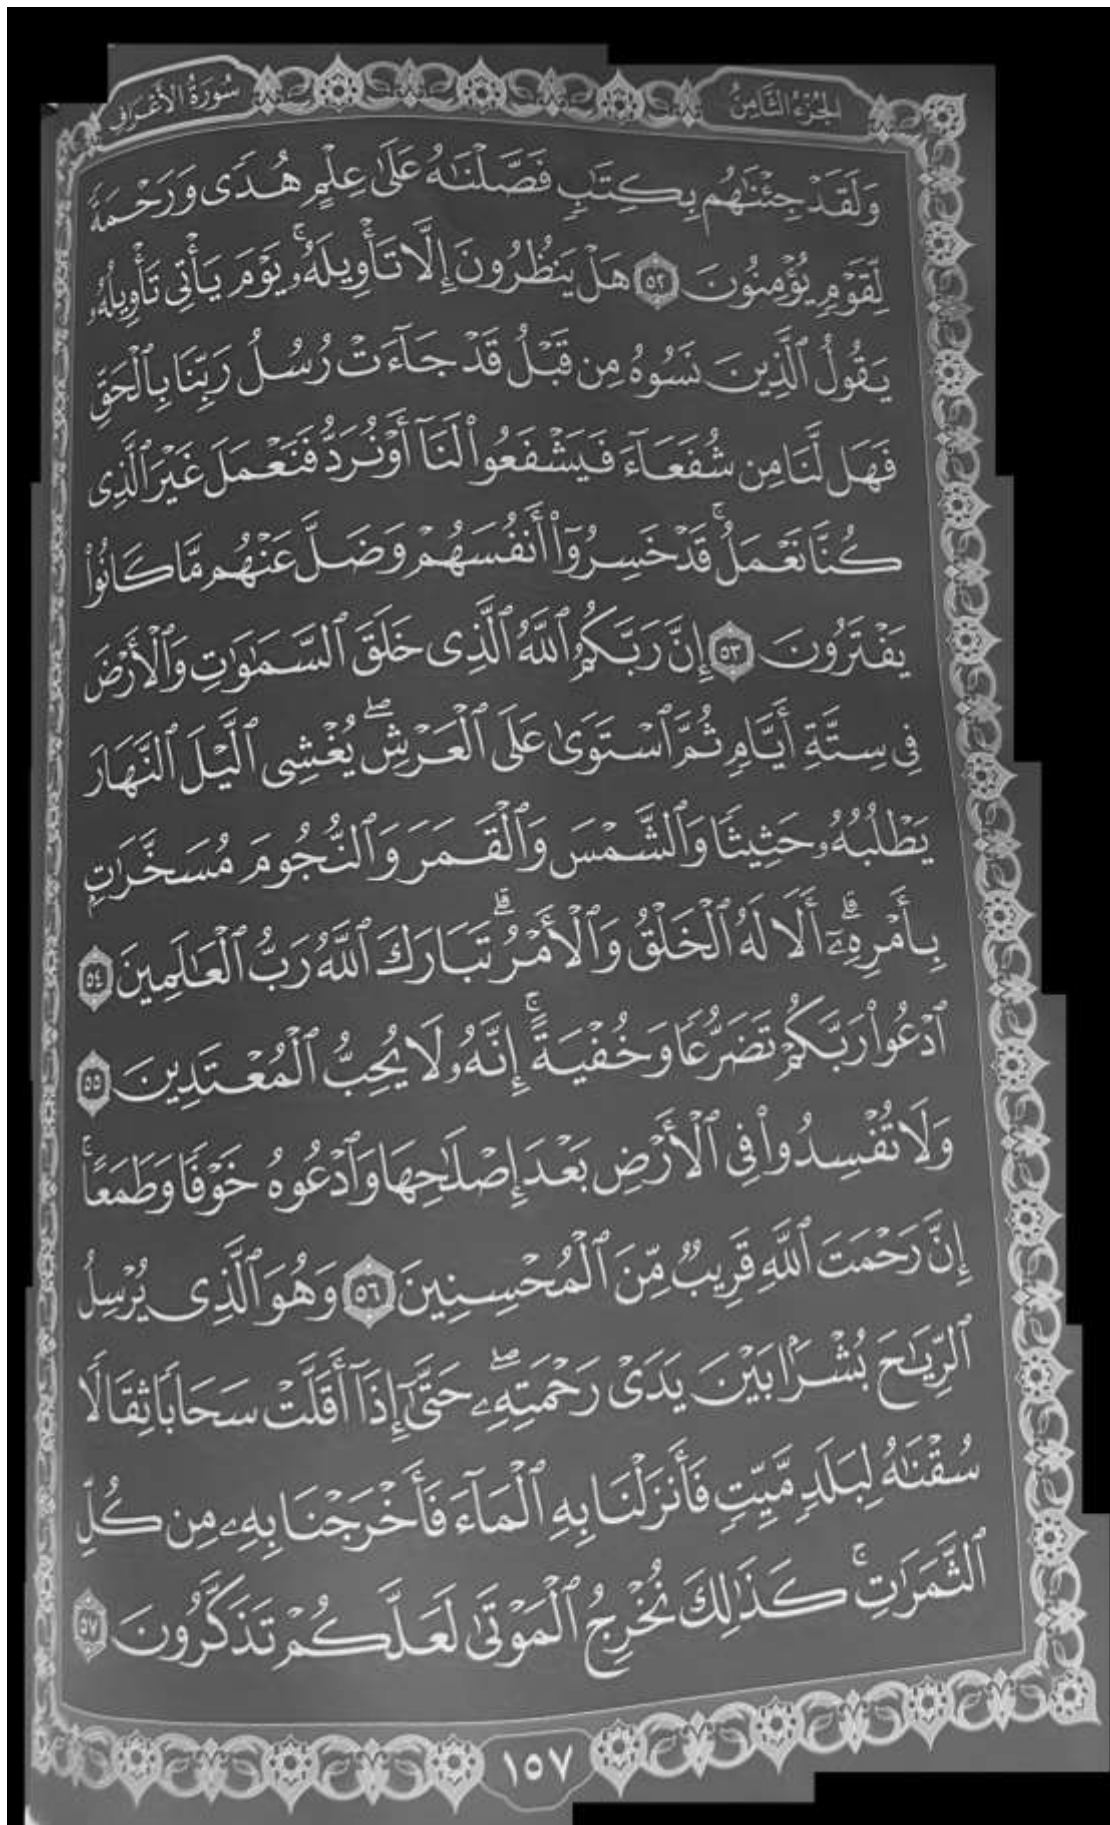 الجزء الثامن
سورة الأعراف
وَلَقَدْ جِئْنَٰهُم بِكِتَٰبٍ فَصَّلْنَٰهُ عَلَىٰ عِلْمٍ هُدًى وَرَحْمَةً
لِّقَوْمٍ يُؤْمِنُونَ ٥٢ هَلْ يَنظُرُونَ إِلَّا تَأْوِيلَهُۥۚ يَوْمَ يَأْتِى تَأْوِيلُهُۥ
يَقُولُ ٱلَّذِينَ نَسُوهُ مِن قَبْلُ قَدْ جَآءَتْ رُسُلُ رَبِّنَا بِٱلْحَقِّ
فَهَل لَّنَا مِن شُفَعَآءَ فَيَشْفَعُوا۟ لَنَآ أَوْ نُرَدُّ فَنَعْمَلَ غَيْرَ ٱلَّذِى
كُنَّا نَعْمَلُۚ قَدْ خَسِرُوٓا۟ أَنفُسَهُمْ وَضَلَّ عَنْهُم مَّا كَانُوا۟
يَفْتَرُونَ ٥٣ إِنَّ رَبَّكُمُ ٱللَّهُ ٱلَّذِى خَلَقَ ٱلسَّمَٰوَٰتِ وَٱلْأَرْضَ
فِى سِتَّةِ أَيَّامٍ ثُمَّ ٱسْتَوَىٰ عَلَى ٱلْعَرْشِۖ يُغْشِى ٱلَّيْلَ ٱلنَّهَارَ
يَطْلُبُهُۥ حَثِيثًا وَٱلشَّمْسَ وَٱلْقَمَرَ وَٱلنُّجُومَ مُسَخَّرَٰتٍۭ
بِأَمْرِهِۦٓۗ أَلَا لَهُ ٱلْخَلْقُ وَٱلْأَمْرُۗ تَبَارَكَ ٱللَّهُ رَبُّ ٱلْعَٰلَمِينَ ٥٤
ٱدْعُوا۟ رَبَّكُمْ تَضَرُّعًا وَخُفْيَةًۚ إِنَّهُۥ لَا يُحِبُّ ٱلْمُعْتَدِينَ ٥٥
وَلَا تُفْسِدُوا۟ فِى ٱلْأَرْضِ بَعْدَ إِصْلَٰحِهَا وَٱدْعُوهُ خَوْفًا وَطَمَعًاۚ
إِنَّ رَحْمَتَ ٱللَّهِ قَرِيبٌ مِّنَ ٱلْمُحْسِنِينَ ٥٦ وَهُوَ ٱلَّذِى يُرْسِلُ
ٱلرِّيَٰحَ بُشْرًۢا بَيْنَ يَدَىْ رَحْمَتِهِۦۖ حَتَّىٰٓ إِذَآ أَقَلَّتْ سَحَابًا ثِقَالًا
سُقْنَٰهُ لِبَلَدٍ مَّيِّتٍ فَأَنزَلْنَا بِهِ ٱلْمَآءَ فَأَخْرَجْنَا بِهِۦ مِن كُلِّ
ٱلثَّمَرَٰتِۚ كَذَٰلِكَ نُخْرِجُ ٱلْمَوْتَىٰ لَعَلَّكُمْ تَذَكَّرُونَ ٥٧
١٥٧